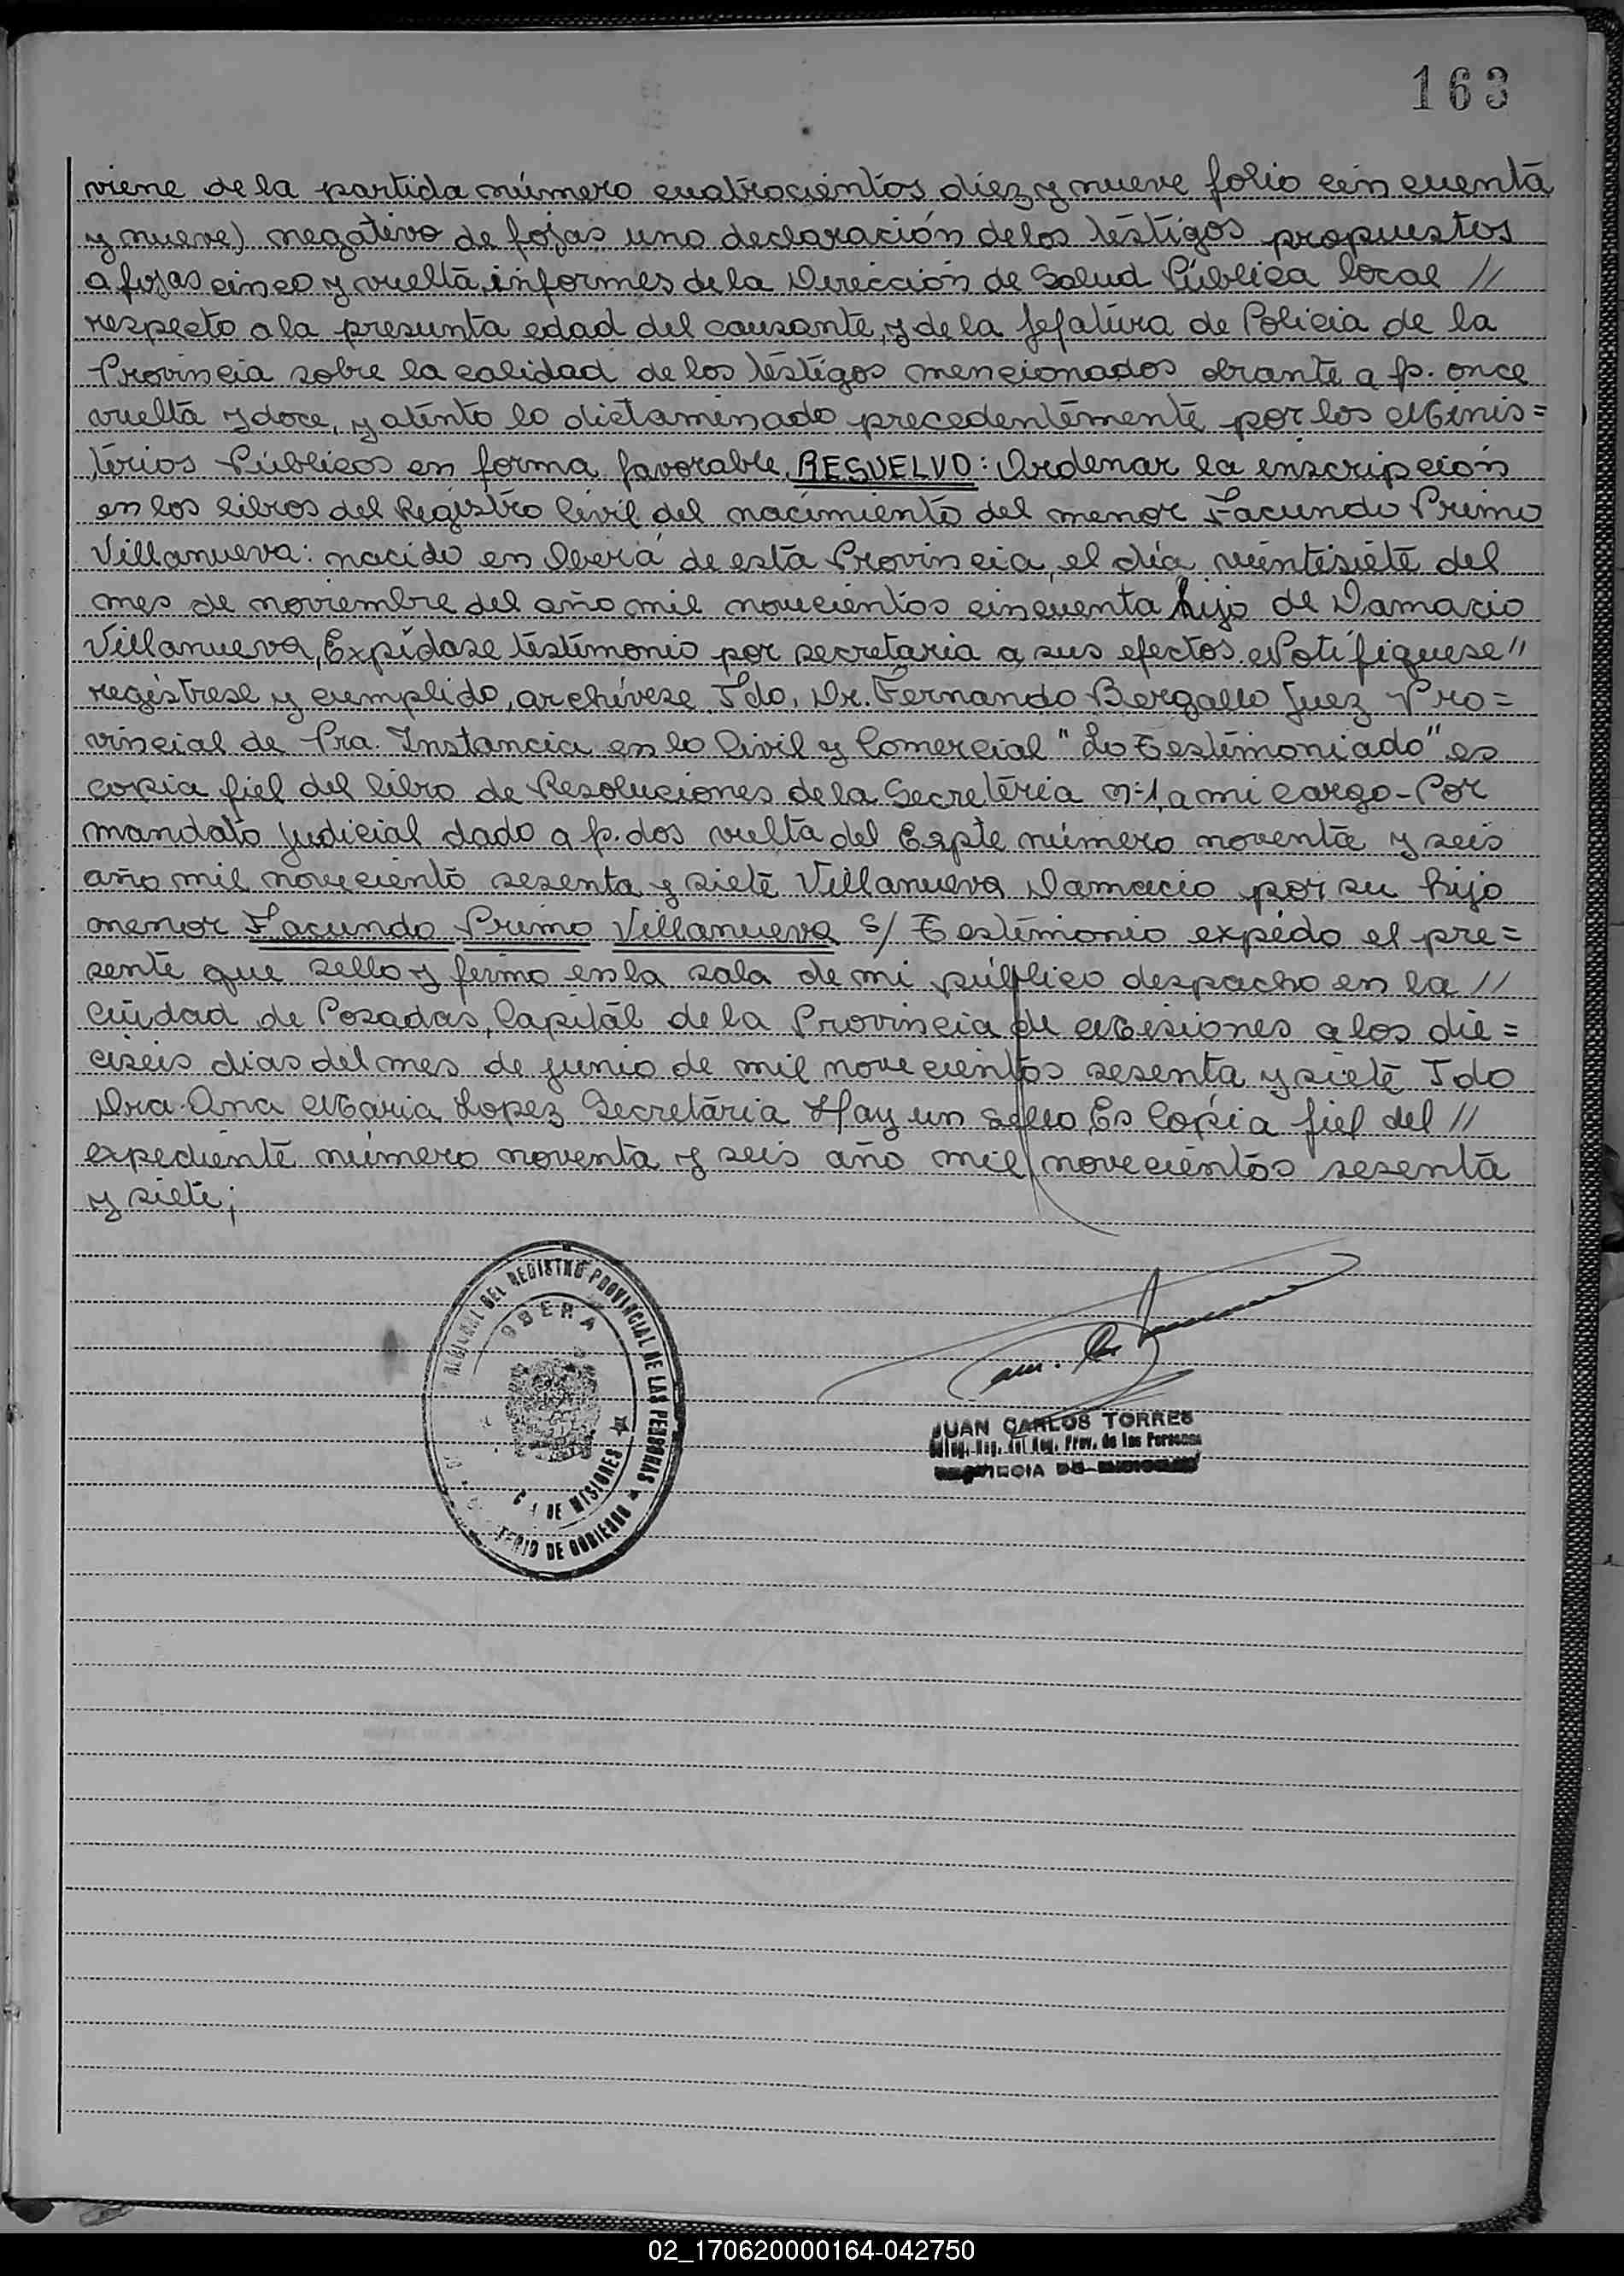 163
viene de la partida número cuatrocientos diez y nueve folio cincuenta
y nueve) negativo de fojas uno declaración de los testigos propuestos
a fojas cinco y vuelta, informes de la Dirección de Salud Pública local //
respecto a la presunta edad del causante, y de la Jefatura de Policia de la
Provincia sobre la calidad de los testigos mencionados obrante a f. once
vuelta y doce, y atento lo dictaminado precedentemente por los Minis=
terios Públicos en forma favorable, RESUELVO: Ordenar la inscripción
en los libros del Registro Civil del nacimiento del menor Facundo Primo
Villanueva: nacido en Oberá de esta Provincia, el día veintisiete del
mes de noviembre del año mil novecientos cincuenta hijo de Damacio
Villanueva, Expídase testimonio por secretaria a sus efectos. Notifiquese //
regístrese y cumplido, archívese. Fdo. Dr. Fernando Bergallo Juez Pro=
vincial de Pra. Instancia en lo Civil y Comercial "Lo Testimoniado" es
copia fiel del libro de Resoluciones de la Secretería nº1, a mi cargo - Por
mandato judicial dado a f. dos vuelta del Expte número noventa y seis
año mil novecientó sesenta y siete Villanueva Damacio por su hijo
menor Facundo Primo Villanueva S/ Testimonio expido el pre=
sente que sello y firmo en la sala de mi público despacho en la //
Ciudad de Posadas, Capital de la Provincia de Misiones a los die=
ciseis dias del mes de junio de mil novecientos sesenta y siete Fdo
Dra. Ana Maria Lopez Secretaria Hay un sello, Es Copia fiel del //
expediente número noventa y seis año mil novecientos sesenta
y siete;
DEL REGISTRO PROVINCIAL DE LAS PERSONAS
OBERA
DE MISIONES
DE GOBIERNO
JUAN CARLOS TORRES
Reg. Prov. de las Personas
02_170620000164-042750